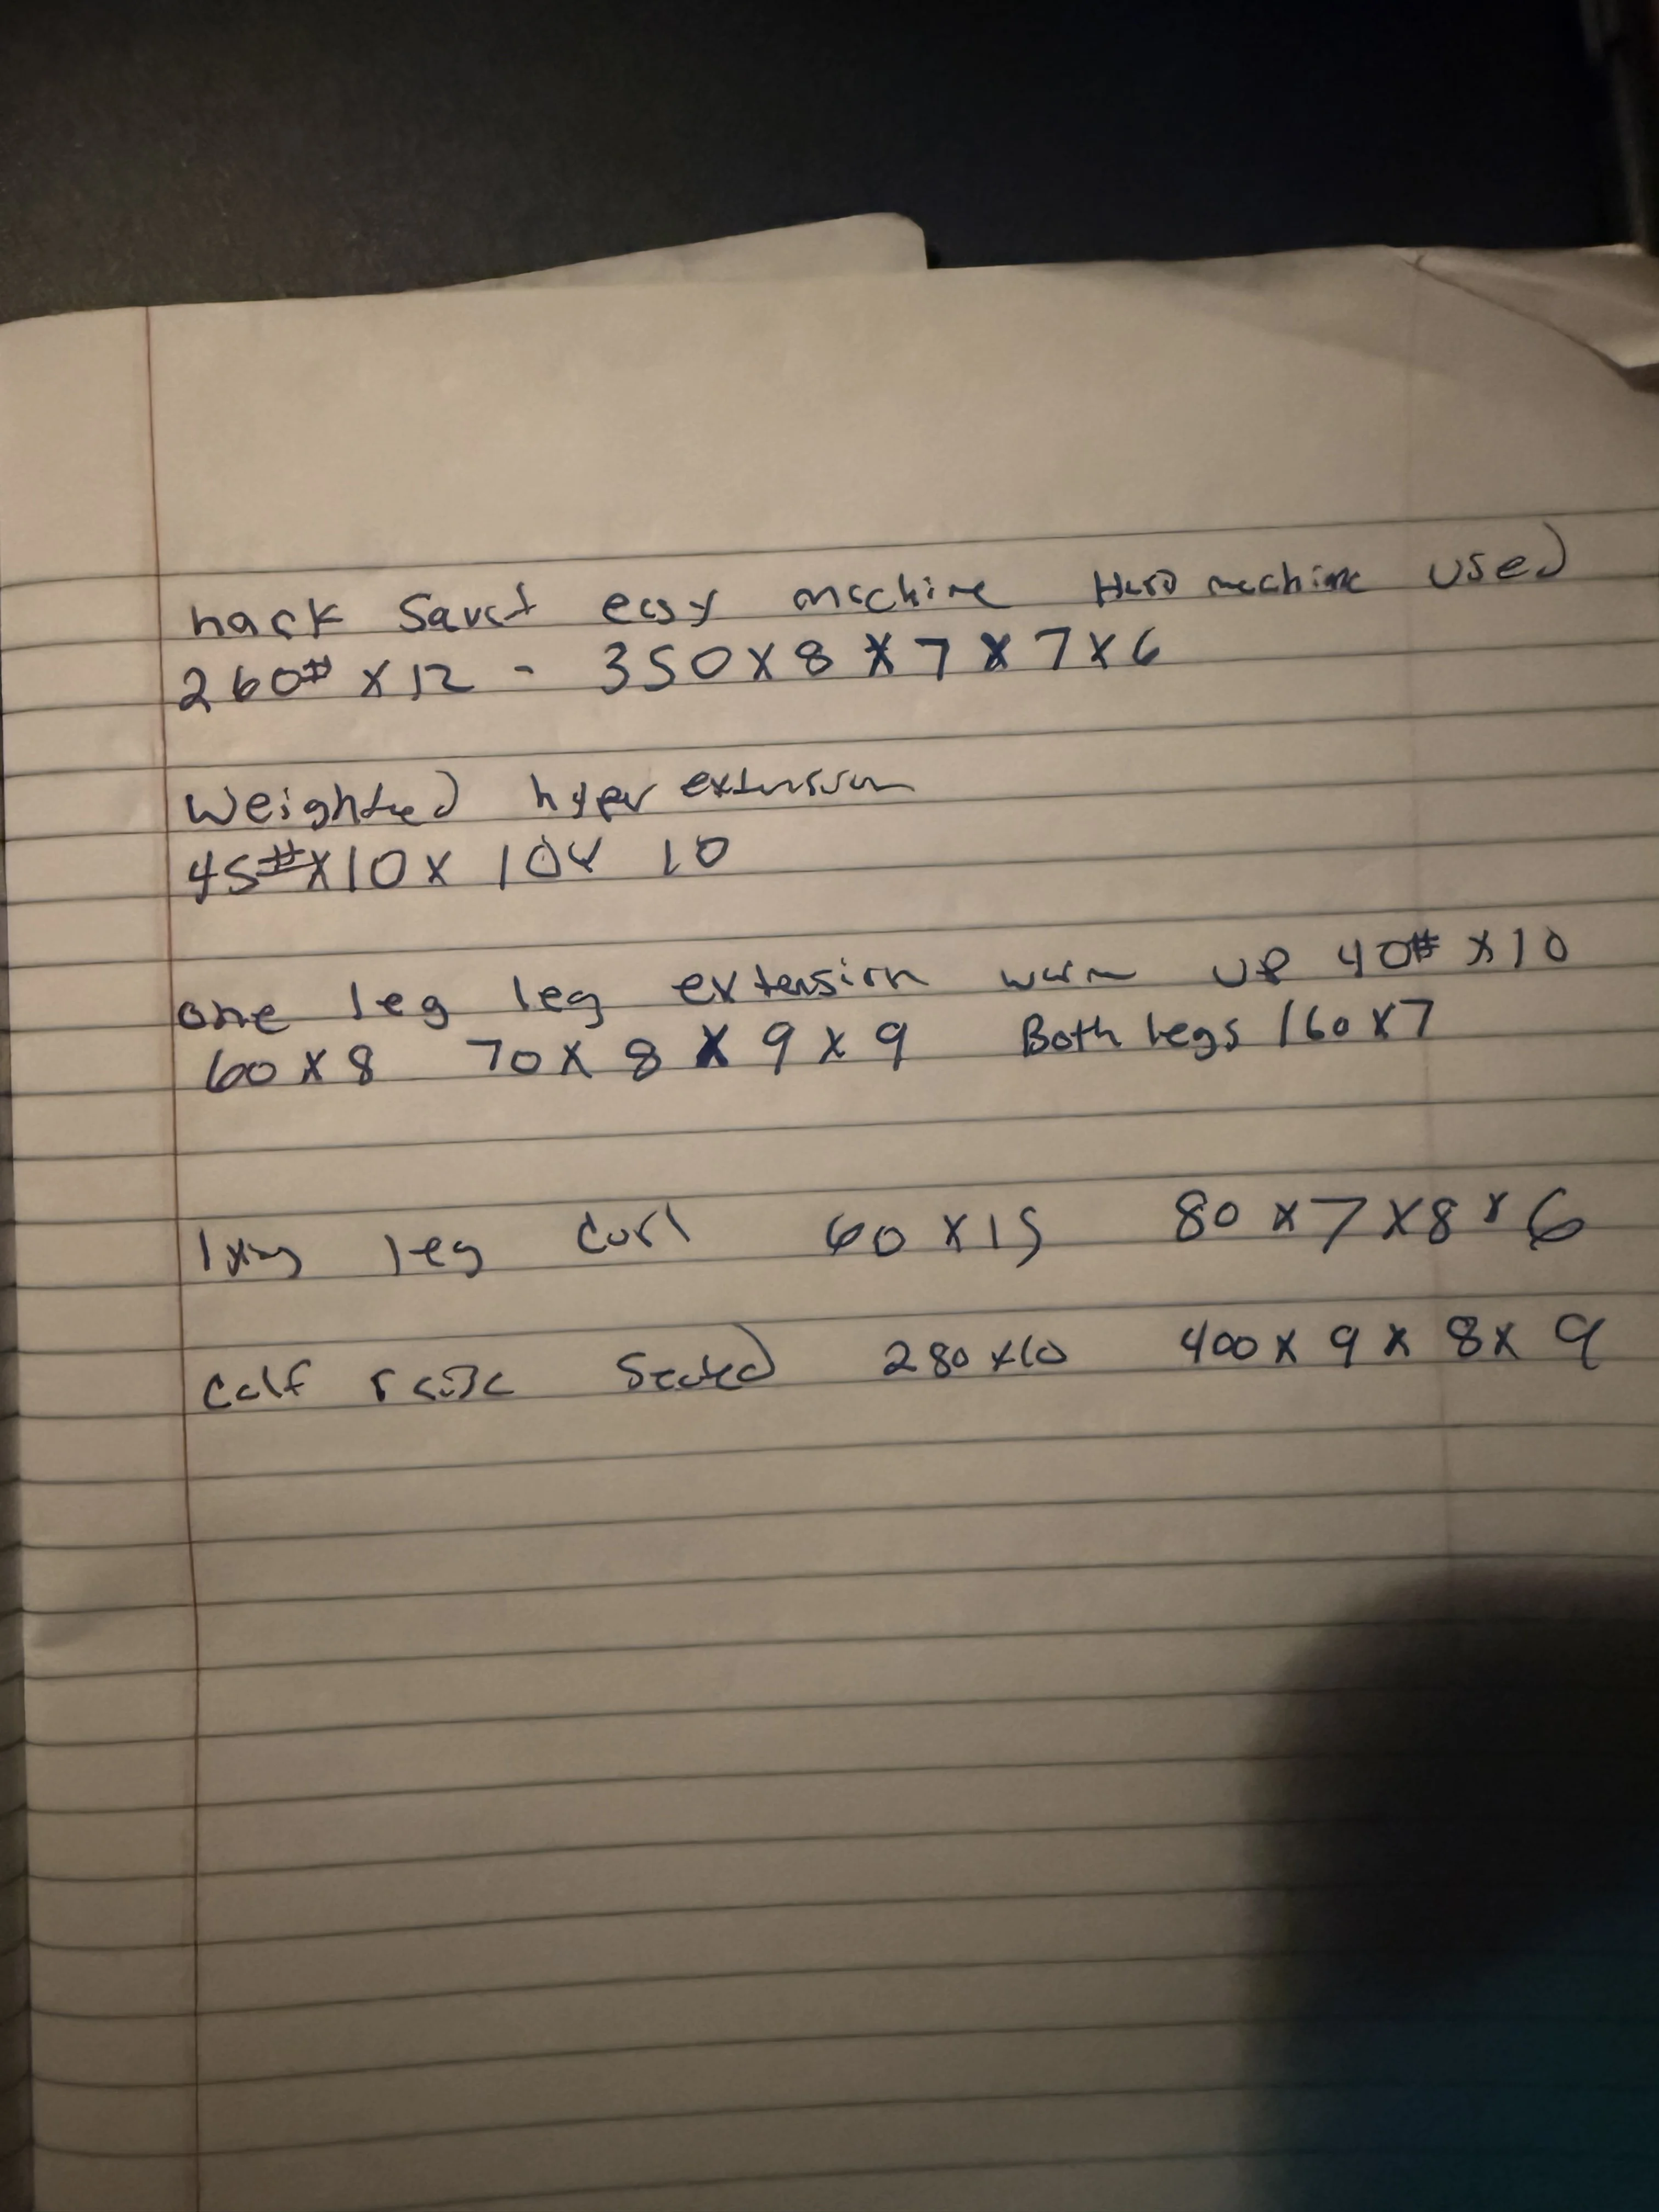 hack Squat easy machine Hard machine used
260# x 12 - 350 x 8 x 7 x 7 x 6
Weighted hyper extension
45# x 10 x 10 x 10
one leg leg extension warm up 40# x 10
60 x 8 70 x 8 x 9 x 9 Both legs 160 x 7
lying leg curl 60 x 15 80 x 7 x 8 x 6
calf raise Seated 280 x 10 400 x 9 x 8 x 9